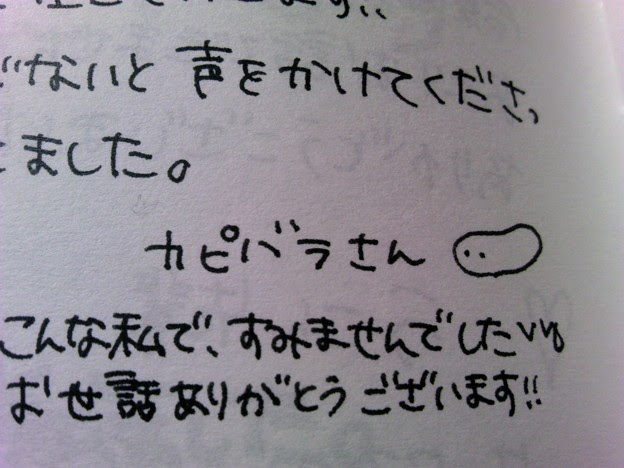 ます!!
ないと 声をかけてくださっ
ました。
カピバラさん
こんな私で、すみませんでした
お世話ありがとうございます!!